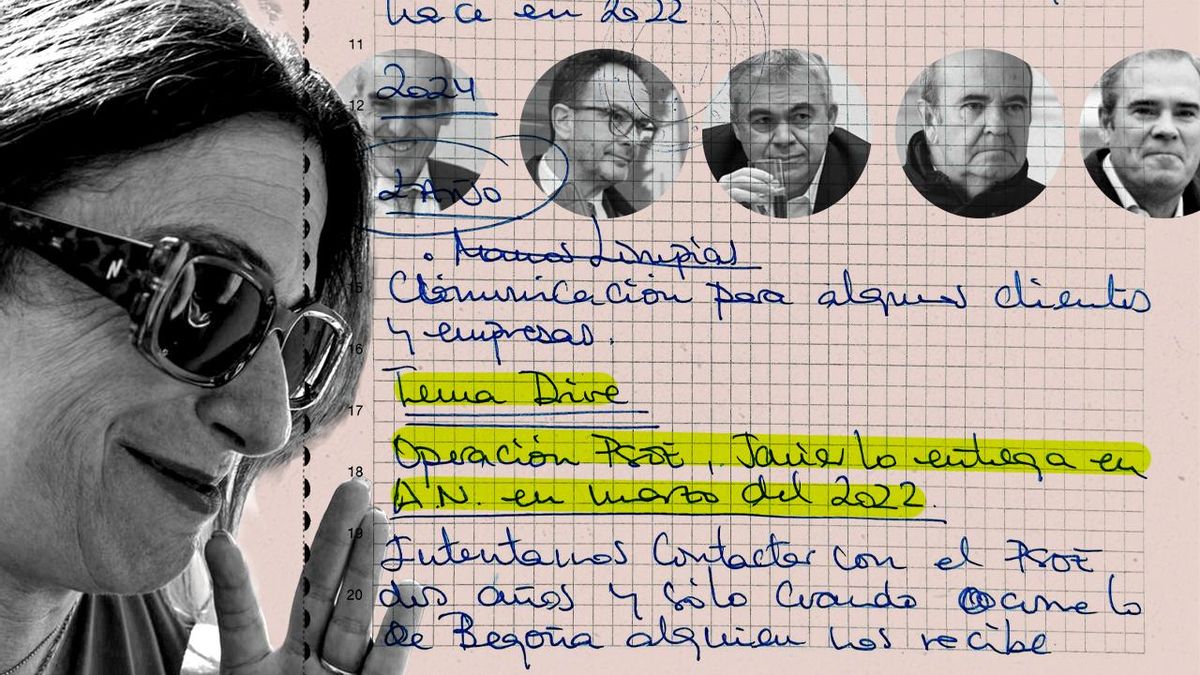 hace en 2022
11
2024
12
1 AÑO
. Manos Limpias
Comunicación para algunos clientes
15
y empresas.
16
Tema Drive
17
Operación PSOE, Javier lo entrega en
18
A.N. en marzo del 2022.
19
Intentamos contactar con el PSOE
dos años y sólo cuando ocurre lo
20
de Begoña alguien nos recibe
N